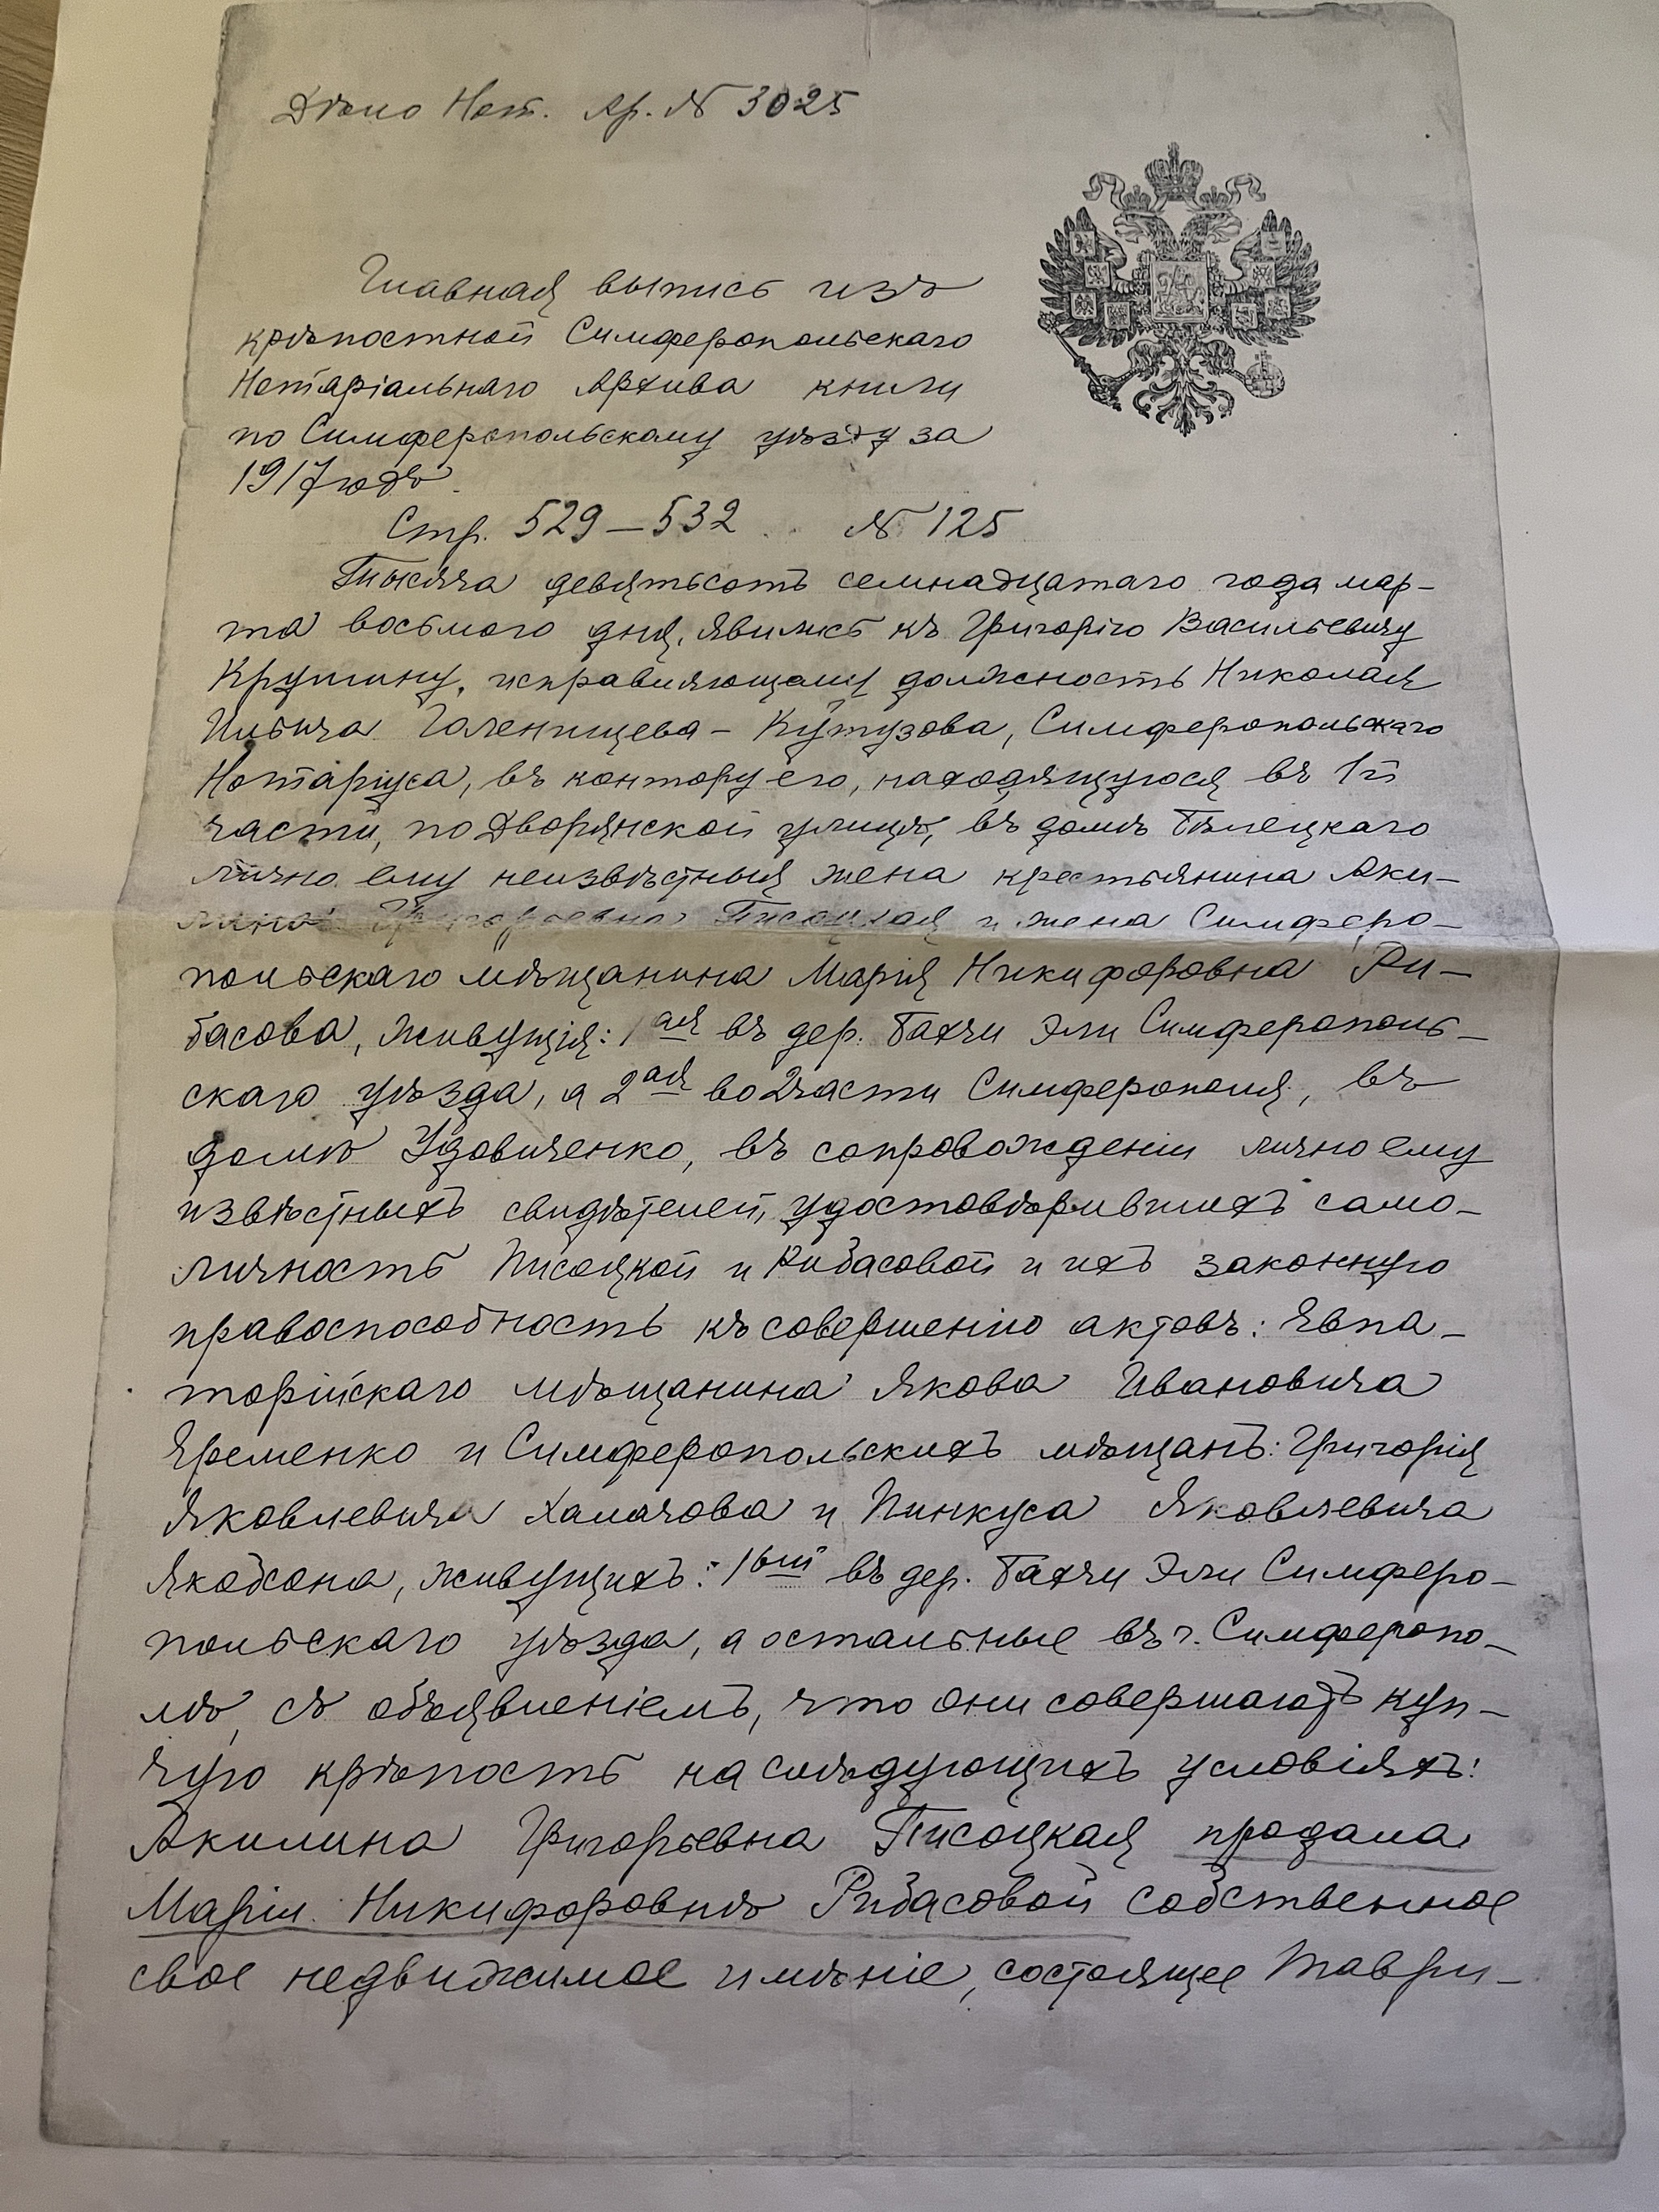 Дѣло Нот. Ар. № 3025
Главная выпись изъ
крѣпостной Симферопольскаго
Нотаріальнаго Архива книги
по Симферопольскому уѣзду за
1917 годъ.
Стр. 529–532 № 125
Тысяча девятьсотъ семнадцатаго года мар-
та восьмого дня, явились къ Григорію Васильевичу
исправляющему должность Николая
Ильича Голенищева-Кутузова, Симферопольскаго
Нотаріуса, въ контору его, находящуюся въ 1й
части, по Дворянской улицѣ, въ домѣ Бѣлецкаго
лично ему неизвѣстныя жена крестьянина Аки-
лина Григорьевна Писоцкая и жена Симферо-
польскаго мѣщанина Марія Никифоровна Ри-
басова, живущія: 1ая въ дер. Бахчи Эли Симферополь-
скаго уѣзда, а 2ая во 2 части Симферополя, въ
домѣ Удовиченко, въ сопровожденіи лично ему
извѣстныхъ свидѣтелей, удостовѣрившихъ само-
личность Писоцкой и Рибасовой и ихъ законную
правоспособность къ совершенію актовъ: Евпа-
торійскаго мѣщанина Якова Ивановича
Яременко и Симферопольскихъ мѣщанъ: Григорія
Яковлевича и Пинкуса Яковлевича
Якобсона, живущихъ: 1ый въ дер. Бахчи Эли Симферо-
польскаго уѣзда, а остальные въ г. Симферопо-
лѣ, съ объявленіемъ, что они совершаютъ куп-
чую крѣпость на слѣдующихъ условіяхъ:
Акилина Григорьевна Писоцкая продала
Маріи Никифоровнѣ Рибасовой собственное
свое недвижимое имѣніе, состоящее Таври-